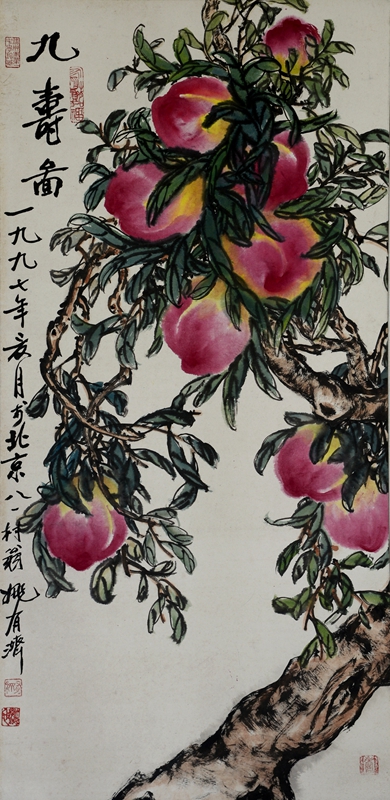 九寿图
一九九七年亥月于北京八一村翁姚有濟